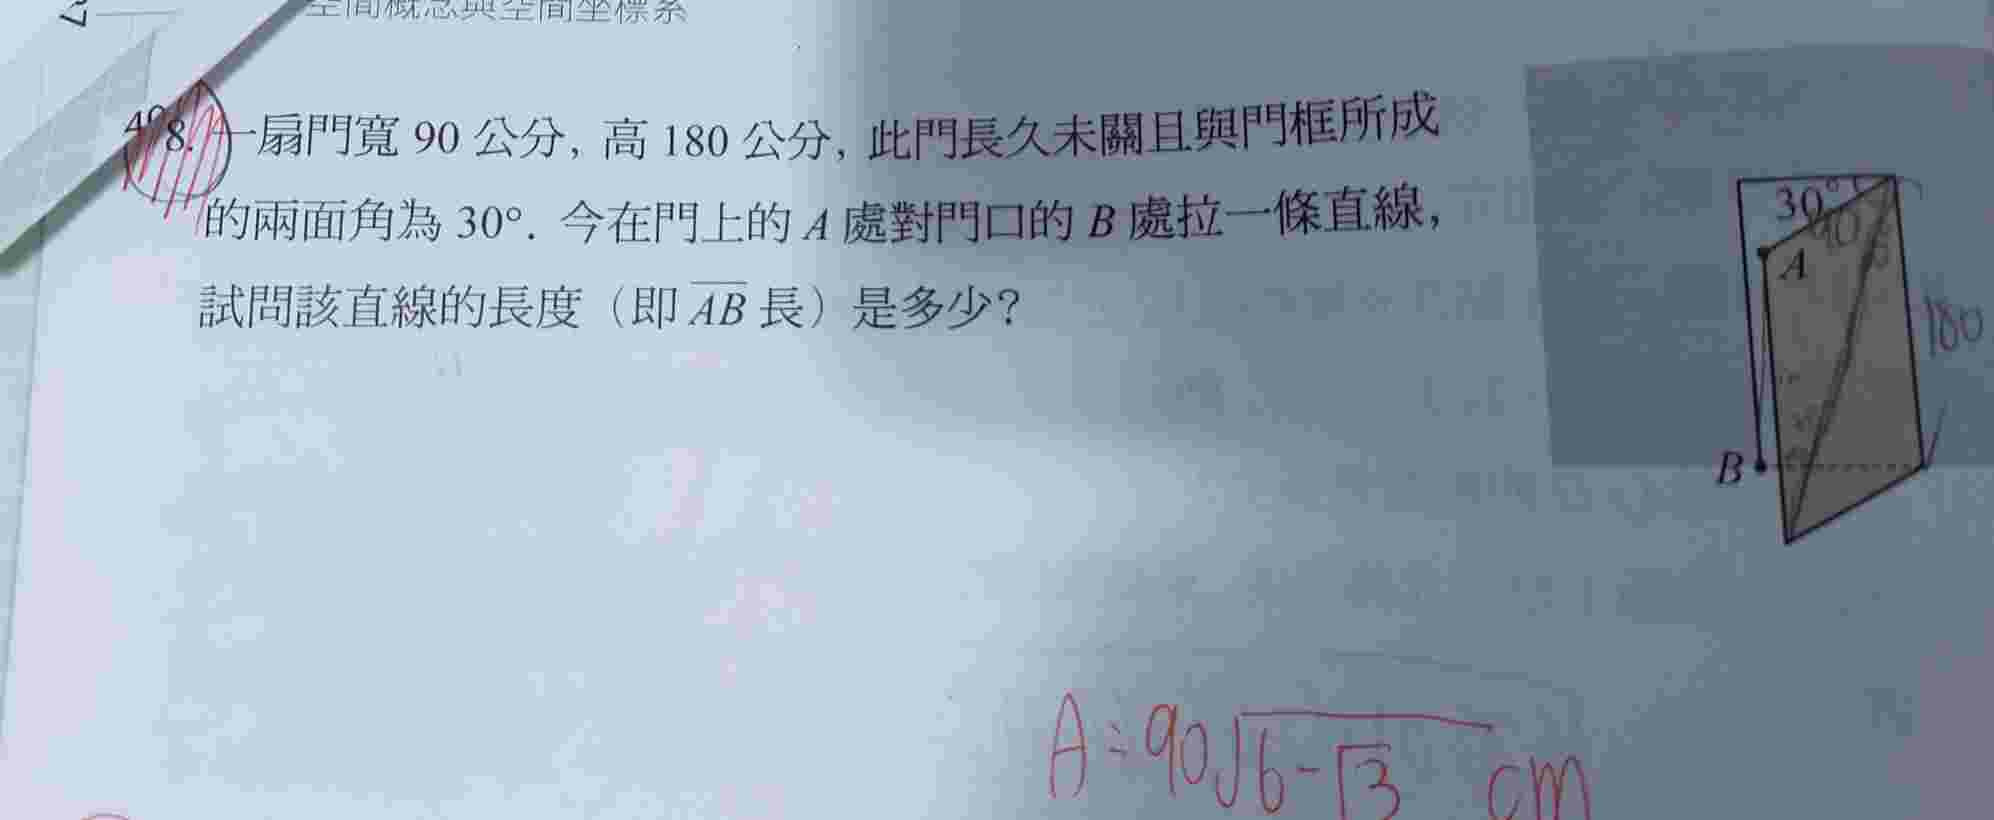 空間概念與空間坐標系
8. 一扇門寬 90 公分, 高 180 公分, 此門長久未關且與門框所成
的兩面角為 30°. 今在門上的 A 處對門口的 B 處拉一條直線,
試問該直線的長度（即 \overline{AB} 長）是多少？
30°
90
A
180
B
A：90√(6-√3) cm